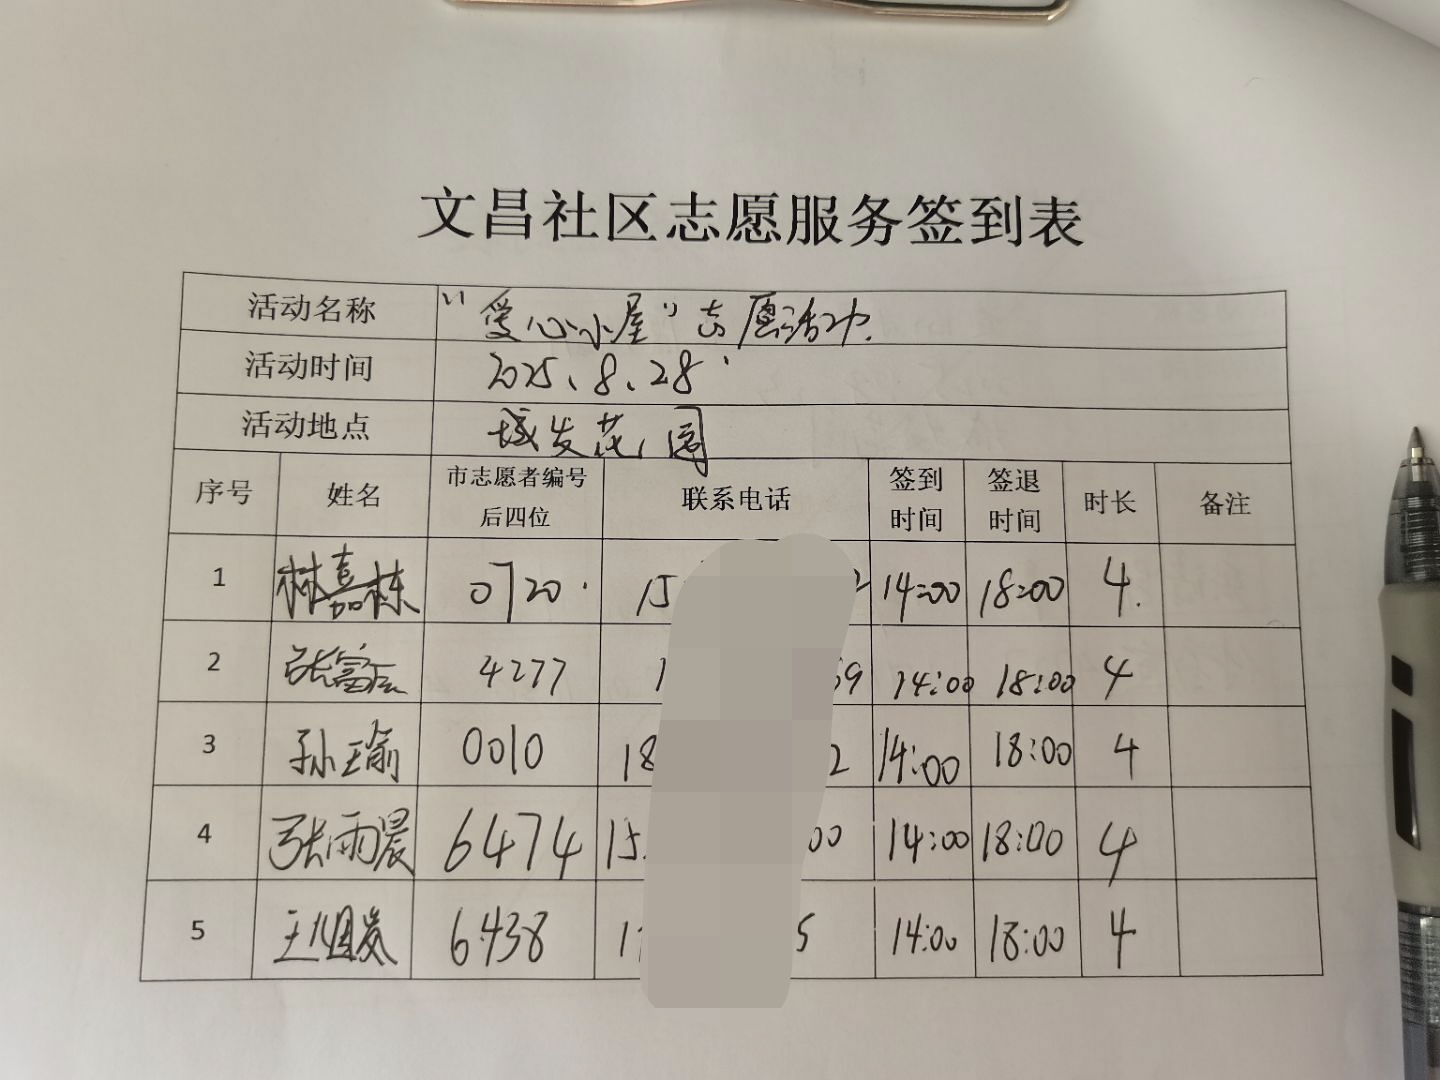 文昌社区志愿服务签到表
活动名称 "爱心小屋"志愿活动.
活动时间 2025、8、28
活动地点 城发花园
序号 姓名 市志愿者编号后四位 联系电话 签到时间 签退时间 时长 备注
1 林嘉栋 0720 15 2 14:00 18:00 4.
2 张富 4277 1 59 14:00 18:00 4
3 孙瑜 0010 18 2 14:00 18:00 4
4 张雨晨 6474 15 00 14:00 18:00 4
5 王岚 6438 1 5 14:00 18:00 4